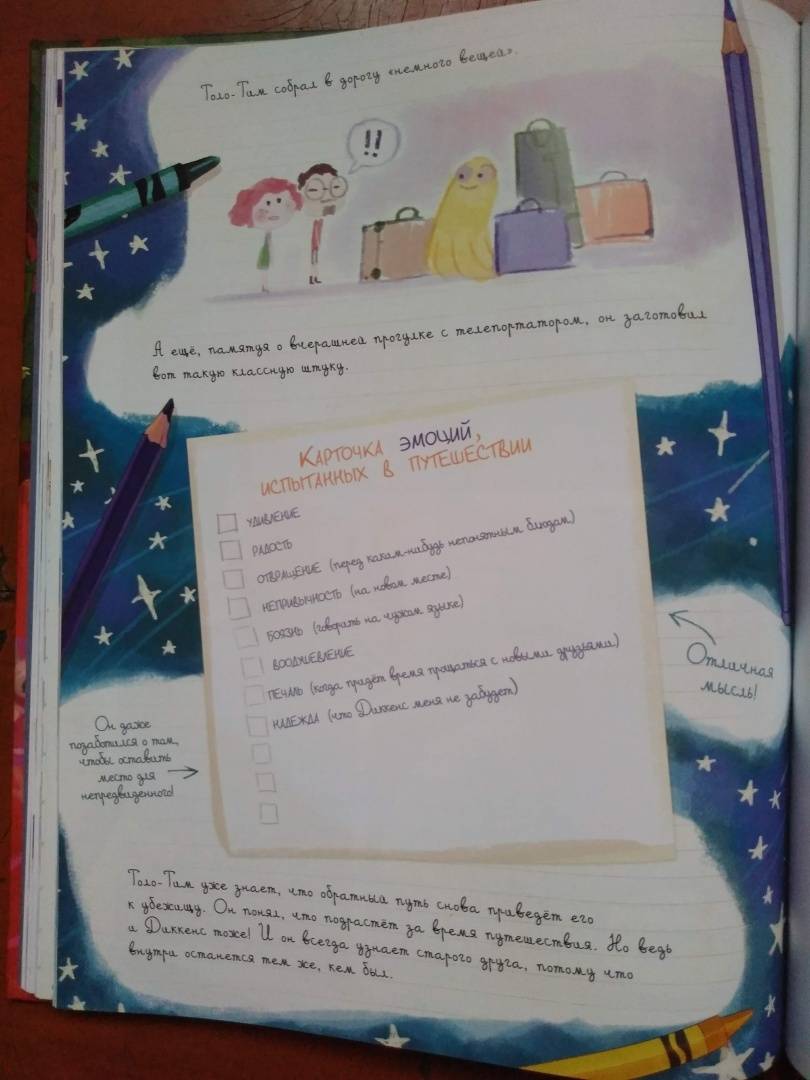 Толо-Тим собрал в дорогу «немного вещей».
!!
А ещё, памятуя о вчерашней прогулке с телепортатором, он заготовил
вот такую классную штуку.
Карточка эмоций,
испытанных в путешествии
УДИВЛЕНИЕ
РАДОСТЬ
ОТВРАЩЕНИЕ (перед каким-нибудь непонятным блюдом)
НЕПРИВЫЧНОСТЬ (на новом месте)
БОЯЗНЬ (говорить на чужом языке)
ВООДУШЕВЛЕНИЕ
ПЕЧАЛЬ (когда придёт время прощаться с новыми друзьями)
НАДЕЖДА (что Диккенс меня не забудет)
Отличная
мысль!
Он даже
позаботился о том,
чтобы оставить
место для
непредвиденного!
Толо-Тим уже знает, что обратный путь снова приведёт его
к убежищу. Он понял, что подрастёт за время путешествия. Но ведь
и Диккенс тоже! И он всегда узнает старого друга, потому что
внутри останется тем же, кем был.